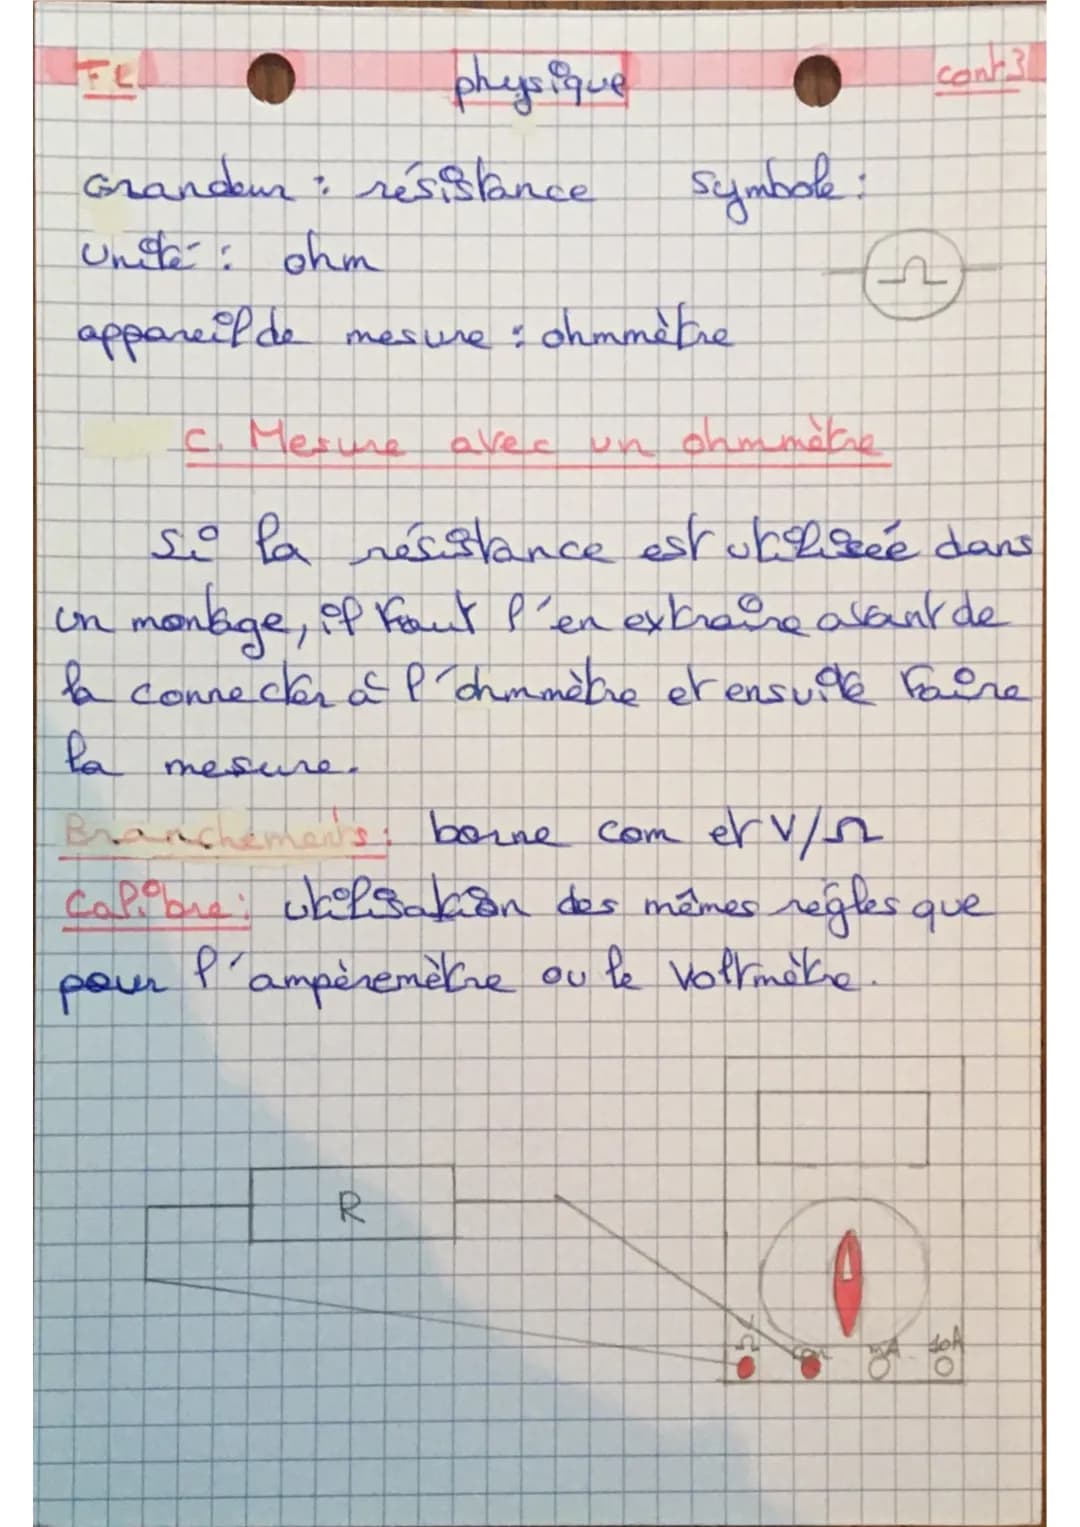 physique
cont3
Grandeur : résistance symbole :
unité : ohm
Ω
appareil de mesure : ohmmètre
C. Mesure avec un ohmmètre
Si la résistance est utilisée dans
un montage, il faut l'en extraire avant de
la connecter à l'ohmmètre et ensuite faire
la mesure.
Branchements : borne com et V/Ω
Calibre : utilisation des mêmes règles que
pour l'ampèremètre ou le voltmètre.
R
Ω com mA 10A